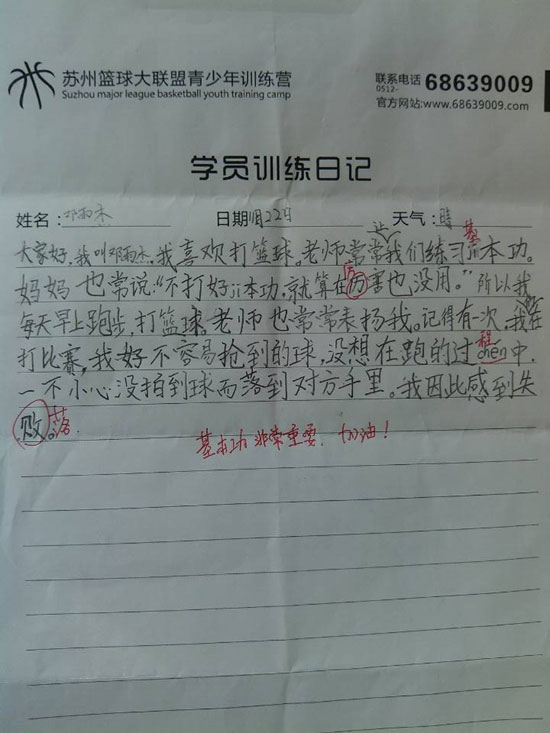 苏州篮球大联盟青少年训练营
Suzhou major league basketball youth training camp
联系电话 0512- 68639009
官方网站:www.68639009.com
学员训练日记
姓名: 邓雨杰 日期 月22日 天气: 晴
基
让
大家好,我叫邓雨杰,我喜欢打篮球。老师常常我们练习ji本功。
厉
妈妈也常说:“不打好ji本功,就算在历害也没用。”所以我
每天早上跑步,打篮球,老师也常常表扬我。记得有一次,我在
程
打比赛,我好不容易抢到的球,没想在跑的过chen中,
一不小心没拍到球而落到对方手里。我因此感到失
败。落
基本功非常重要,加油!